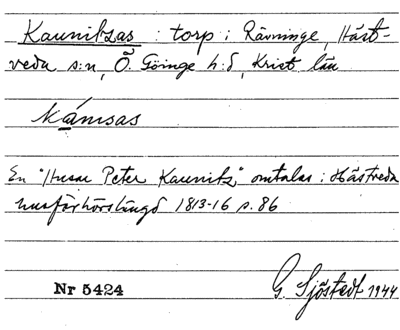 Kaunitzas : torp i Rävninge, Häst-
veda s:n, Ö. Göinge h:d, Krist. län
Kámsas
En "Husar Peter Kaunitz" omtalas i Hästveda
husförhörslängd 1813-16 s. 86
Nr 5424
G. Sjöstedt 1944